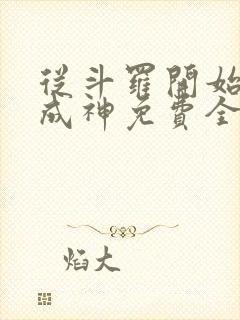 從斗羅開始
成神免費全
焰大